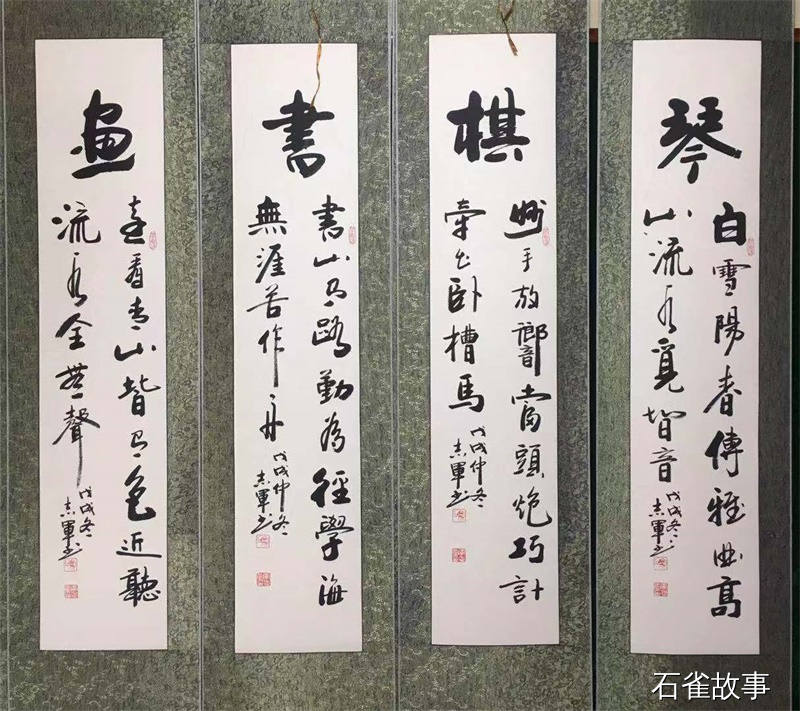 琴
白雪陽春傳雅曲高
山流水覓智音
戊戌冬
志軍书
棋
妙手放響當頭炮巧計
牽出卧槽馬
戊戌仲冬
志軍书
書
書山有路勤為徑學海
無涯苦作舟
戊戌仲冬
志軍书
畫
遠看青山皆有色近聽
流水全無聲
戊戌冬
志軍书
石雀故事